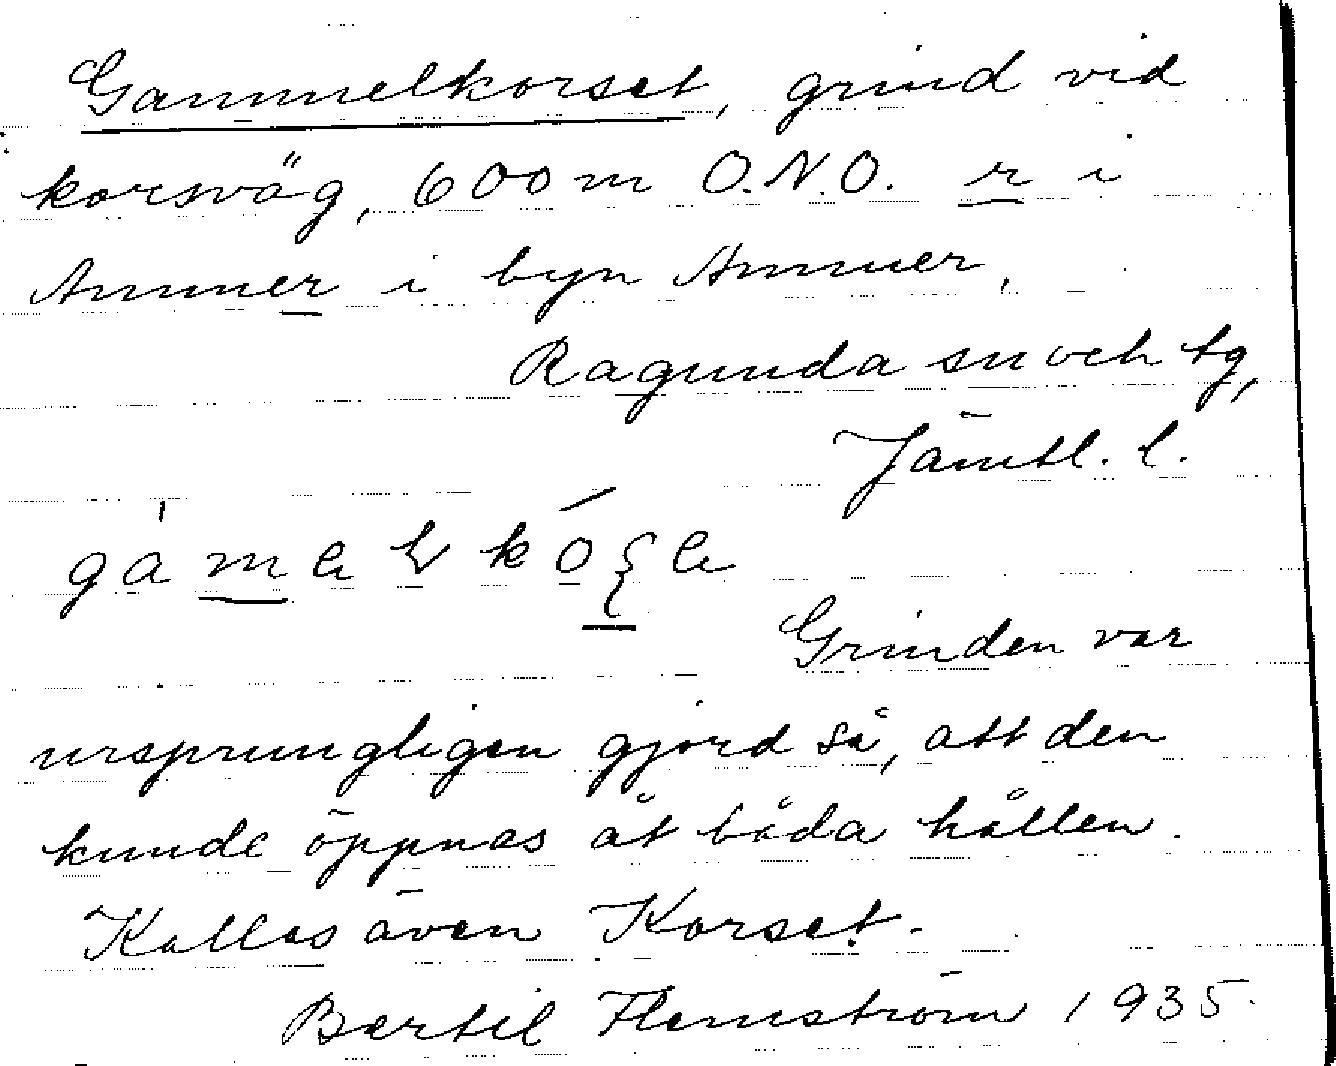 Gammelkorset, grind vid
korsväg, 600 m O.N.O. r i
Ammer i byn Ammer,
Ragunda sn och tg,
Jämtl. l.
Grinden var
ursprungligen gjord så, att den
kunde öppnas åt båda hållen.
Kallas även Korset.
Bertil Flemström 1935.